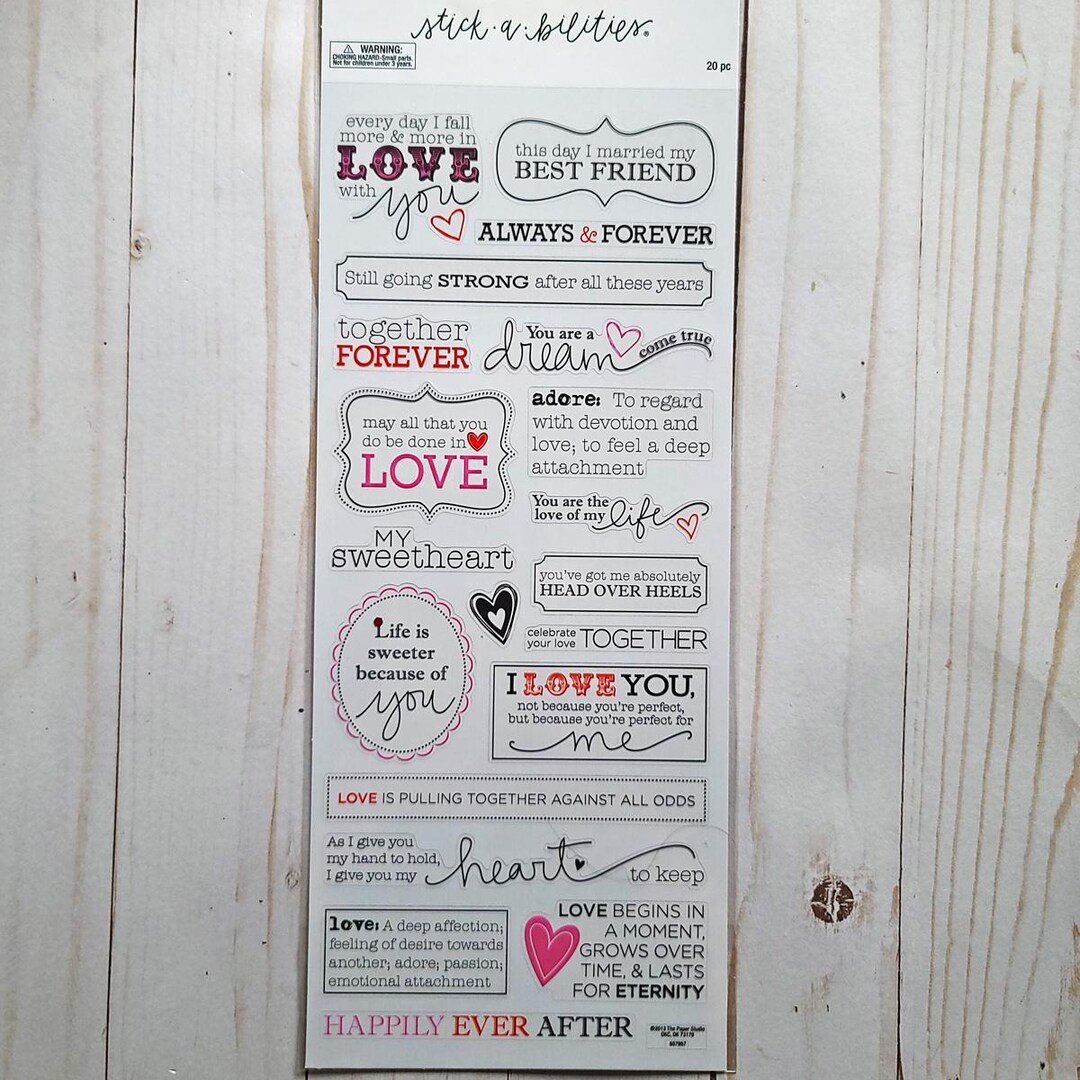 stick·a·bilities®
WARNING:
CHOKING HAZARD-Small parts.
Not for children under 3 years.
20 pc
every day I fall
more & more in
LOVE
with you
this day I married my
BEST FRIEND
ALWAYS & FOREVER
Still going STRONG after all these years
together
FOREVER
You are a
dream come true
may all that you
do be done in
LOVE
adore: To regard
with devotion and
love; to feel a deep
attachment
You are the
love of my life
MY
sweetheart
you've got me absolutely
HEAD OVER HEELS
Life is
sweeter
because of
you
celebrate
your love TOGETHER
I LOVE YOU,
not because you're perfect,
but because you're perfect for
me
LOVE IS PULLING TOGETHER AGAINST ALL ODDS
As I give you
my hand to hold,
I give you my heart to keep
love: A deep affection;
feeling of desire towards
another; adore; passion;
emotional attachment
LOVE BEGINS IN
A MOMENT,
GROWS OVER
TIME, & LASTS
FOR ETERNITY
HAPPILY EVER AFTER
©2013 The Paper Studio
OKC, OK 73179